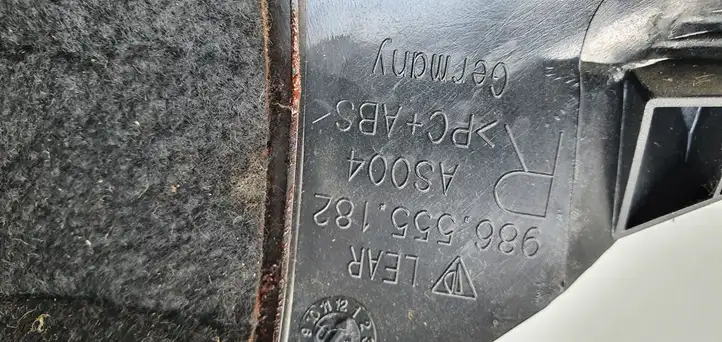 LEAR
986.555.182
AS004 R
>PC+ABS<
Germany
9 10 11 12 1 2